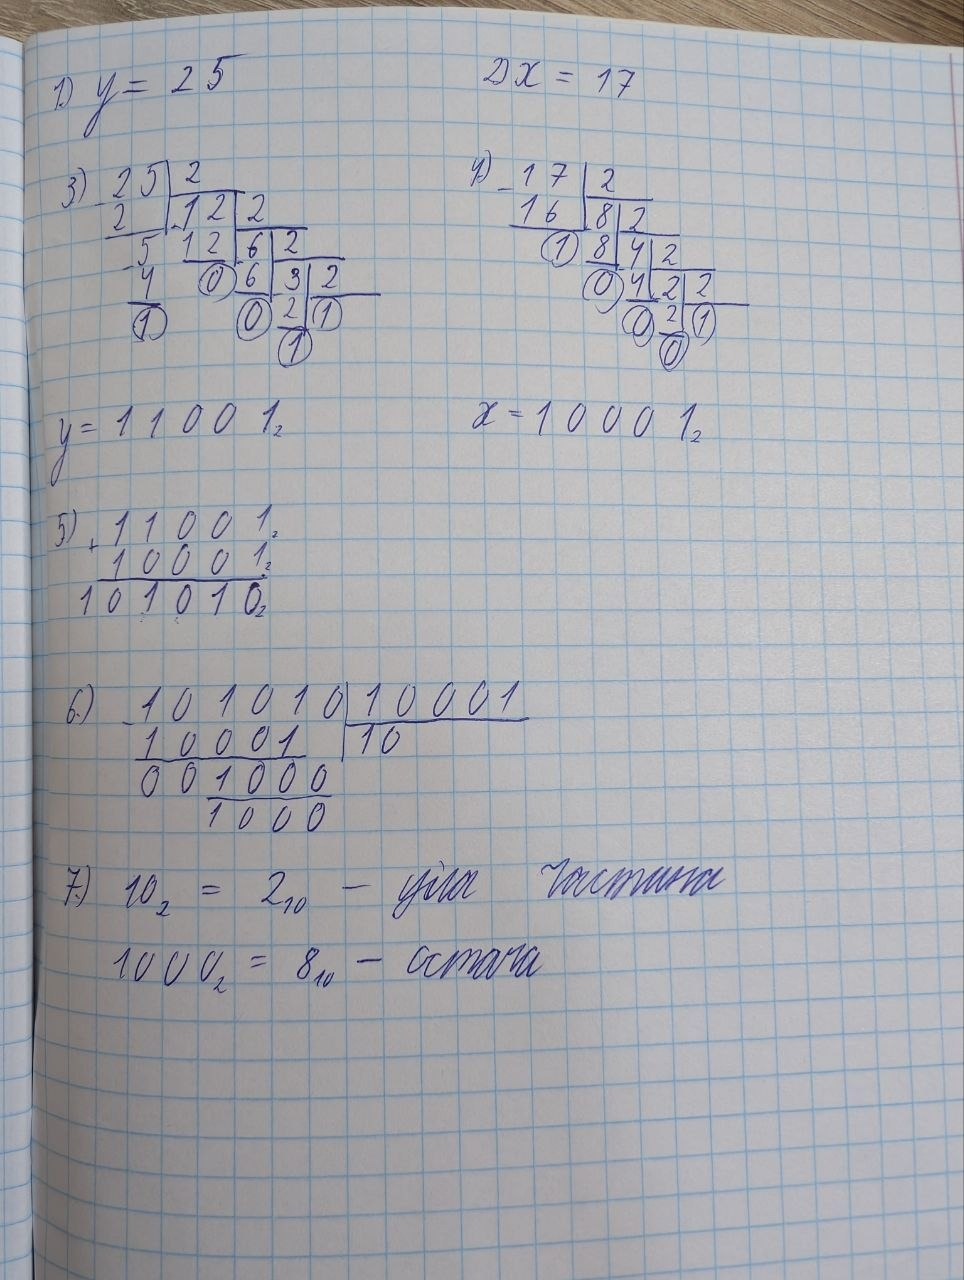 1.) y = 25 2) x = 17
3) - 25 | 2 4.) - 17 | 2
2 - 12 | 2 16 8 | 2
- 5 12 6 | 2 1 8 4 | 2
4 0 6 3 | 2 0 4 2 | 2
1 0 2 1 0 2 1
1 0
y = 11001₂ x = 10001₂
5) + 11001₂
10001₂
101010₂
6.) - 101010 | 10001
10001 | 10
001000
1000
7.) 10₂ = 2₁₀ - ціла частина
1000₂ = 8₁₀ - остача